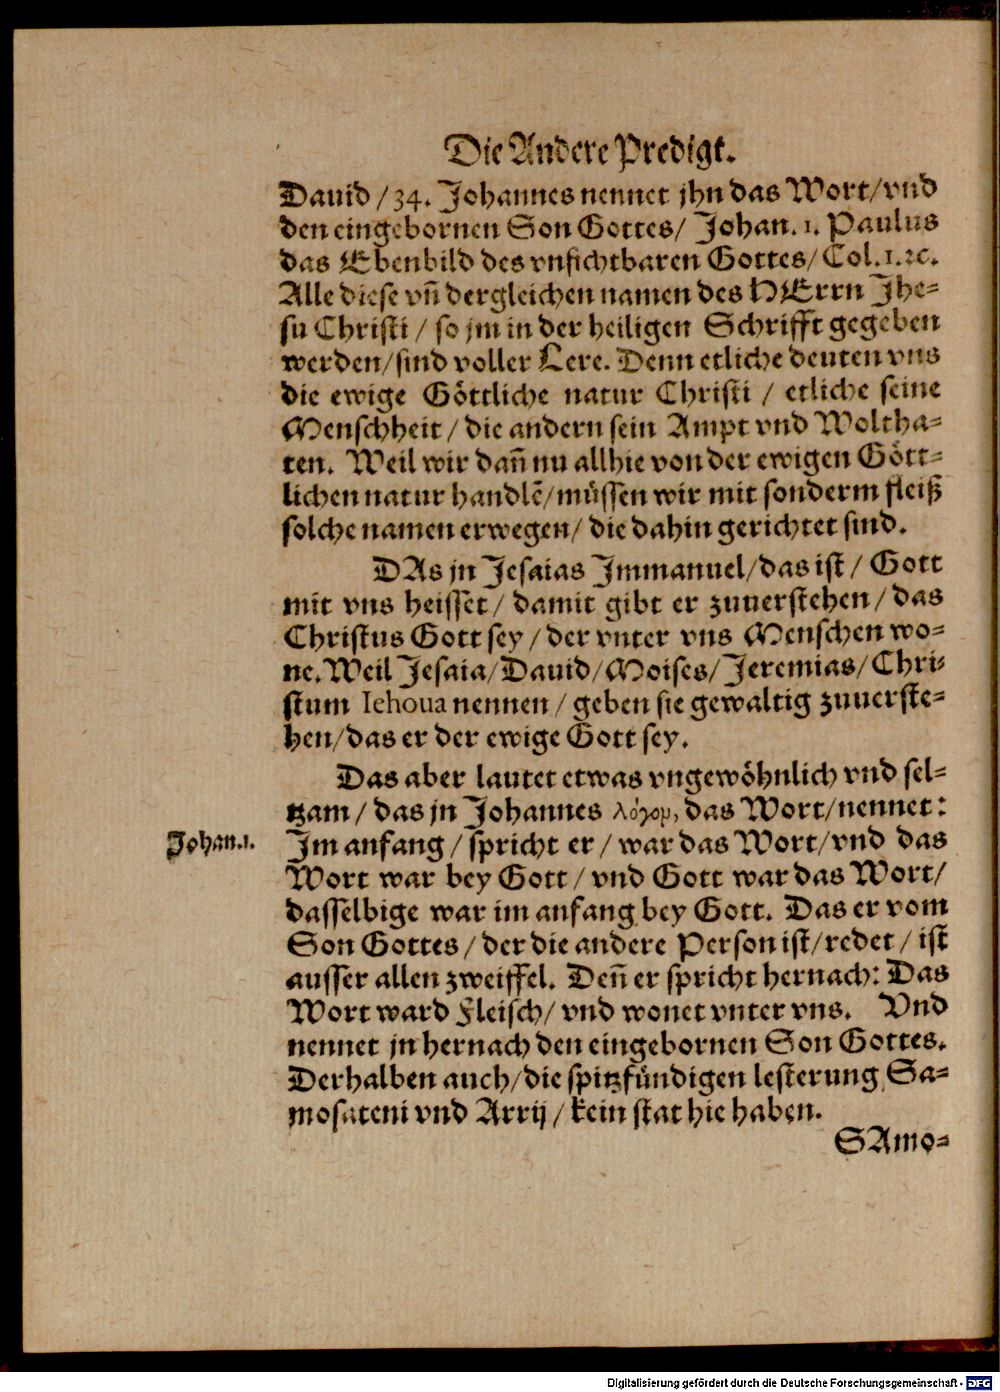 Die Andere Predigt.
Dauid / 34. Johannes nennet jhn das Wort / vnd
den eingebornen Son Gottes / Johan. 1. Paulus
das Ebenbild des vnsichtbaren Gottes / Col. 1. ꝛc.
Alle diese vñ dergleichen namen des HErrn Jhe-
su Christi / so jm in der heiligen Schrifft gegeben
werden / sind voller Lere. Denn etliche deuten vns
die ewige Göttliche natur Christi / etliche seine
Menschheit / die andern sein Ampt vnd Woltha-
ten. Weil wir dañ nu allhie von der ewigen Gött-
lichen natur handlẽ / müssen wir mit sonderm fleiß
solche namen erwegen / die dahin gerichtet sind.
DAs jn Jesaias Jmmanuel / das ist / Gott
mit vns heisset / damit gibt er zuuerstehen / das
Christus Gott sey / der vnter vns Menschen wo-
ne. Weil Jesaia / Dauid / Moises / Jeremias / Chri-
stum Iehoua nennen / geben sie gewaltig zuuerste-
hen / das er der ewige Gott sey.
Das aber lautet etwas vngewöhnlich vnd sel-
tzam / das jn Johannes λόγον, das Wort / nennet:
Johan. 1.
Jm anfang / spricht er / war das Wort / vnd das
Wort war bey Gott / vnd Gott war das Wort /
dasselbige war im anfang bey Gott. Das er vom
Son Gottes / der die andere Person ist / redet / ist
ausser allen zweiffel. Deñ er spricht hernach: Das
Wort ward Fleisch / vnd wonet vnter vns. Vnd
nennet jn hernach den eingebornen Son Gottes.
Derhalben auch / die spitzfündigen lesterung Sa-
mosateni vnd Arrij / kein stat hie haben.
SAmo-
Digitalisierung gefördert durch die Deutsche Forschungsgemeinschaft - DFG